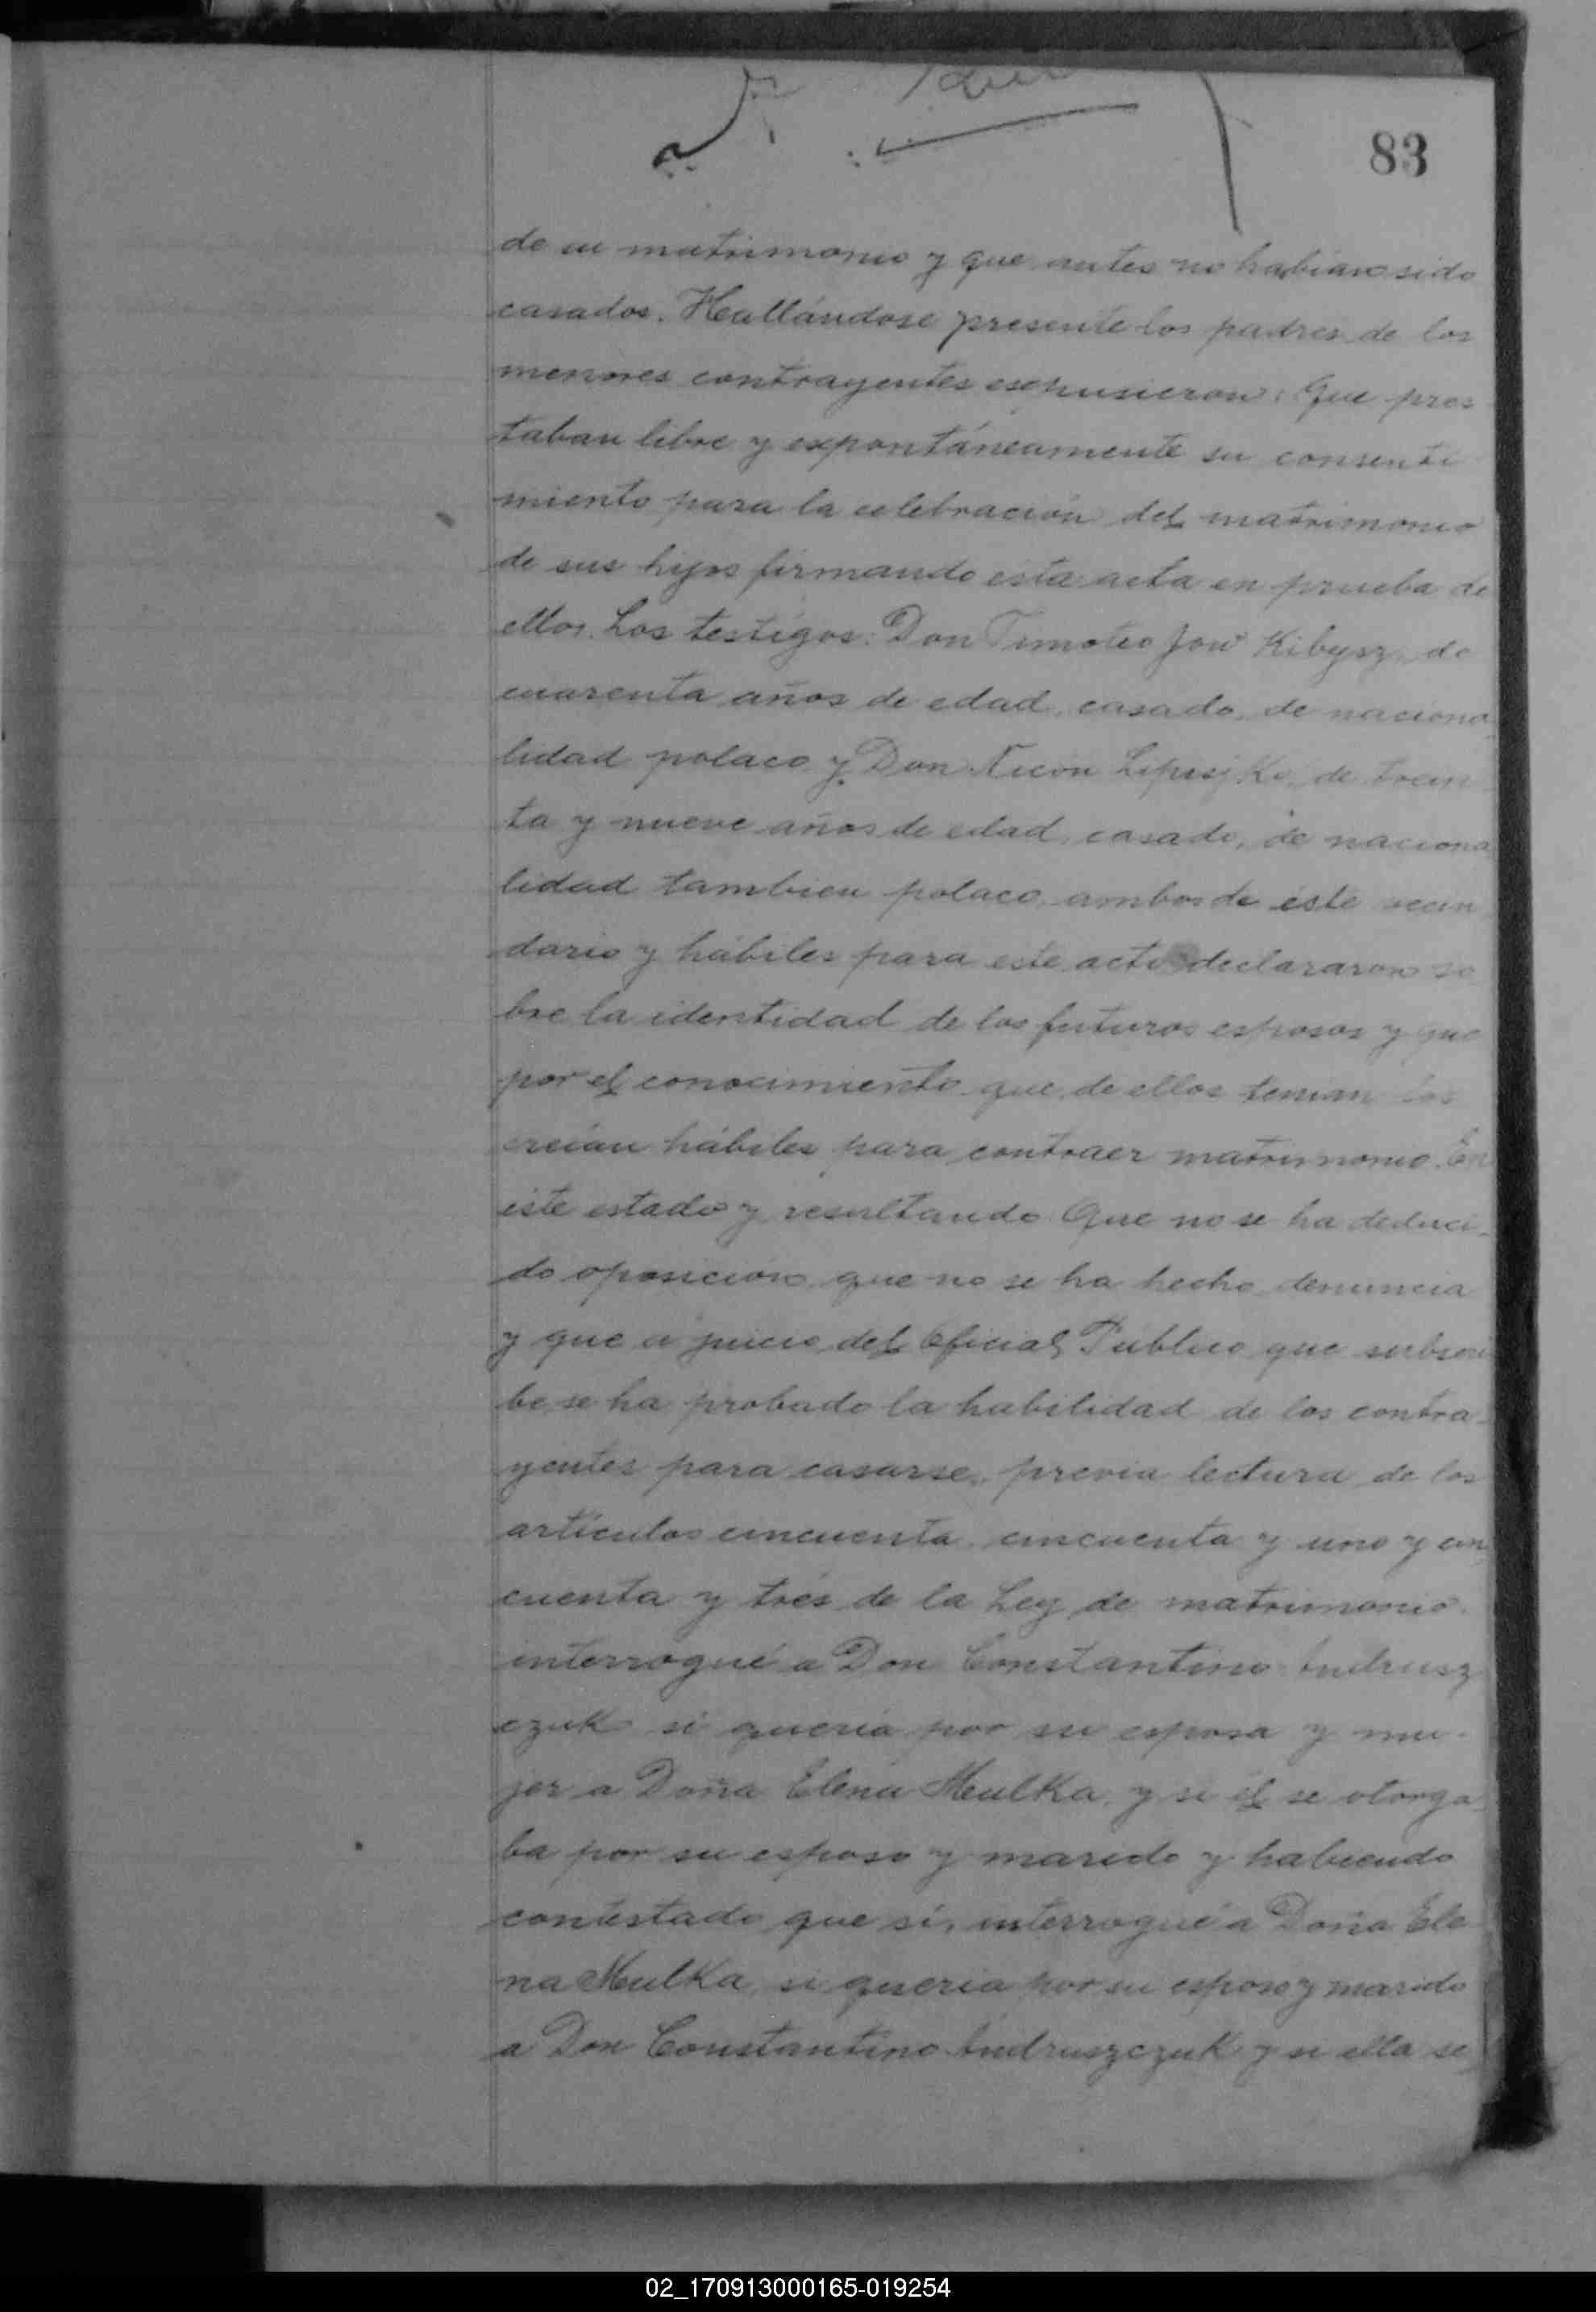 83
de su matrimonio y que antes no habian sido
casados. Hallándose presente los padres de los
menores contrayentes expusieron: Que pres
taban libre y expontáneamente su consenti
miento para la celebración del matrimonio
de sus hijos firmando esta acta en prueba de
ellos. Los testigos: Don Timoteo Jow Kibysz, de
cuarenta años de edad, casado, de naciona
lidad polaco y Don Nicon de trein
ta y nueve años de edad, casado, de naciona
lidad tambien polaco, ambos de éste vecin
dario y hábiles para este acto declararon so
bre la identidad de los futuros esposos y que
por el conocimiento que de ellos tenian los
creian hábiles para contraer matrimonio. En
éste estado y resultando Que no se ha deduci-
do oposición, que no se ha hecho denuncia
y que a juicio del Oficial Público que subscri
be, se ha probado la habilidad de los contra-
yentes para casarse, previa lectura de los
artículos cincuenta, cincuenta y uno y cin
cuenta y trés de la Ley de matrimonio.
interrogué a Don Constantino Andrusz
czuk si queria por su esposa y mu-
jer a Doña Elena Meulka, y si él se otorga
ba por su esposo y marido y habiendo
contestado que sí, interrogué a Doña Ele
na Meulka, si queria por su esposo y marido
a Don Constantino Andruszczuk y si ella se
02_170913000165-019254